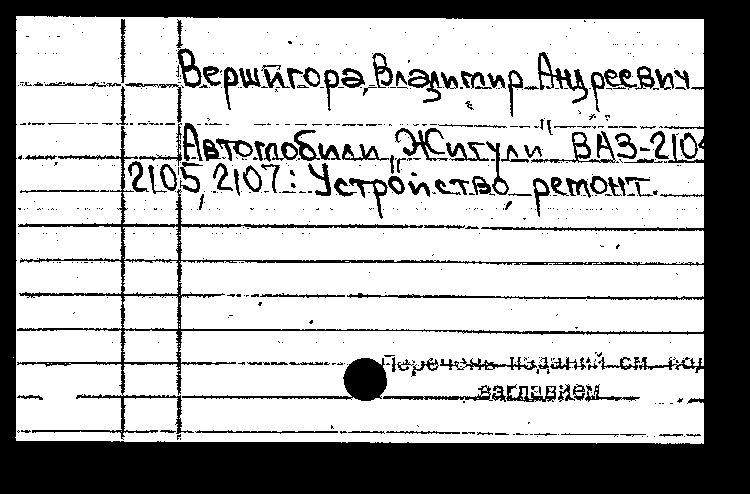 Вершигора, Владимир Андреевич
Автомобили „Жигули“ ВАЗ-2104
2105, 2107: Устройство, ремонт.
Перечень изданий см. под
заглавием